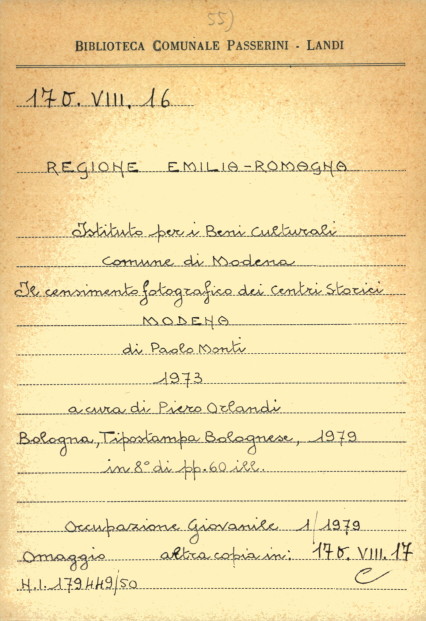 55)
BIBLIOTECA COMUNALE PASSERINI - LANDI
170. VIII. 16
REGIONE EMILIA-ROMAGNA
Istituto per i Beni Culturali
Comune di Modena
Il censimento fotografico dei Centri Storici
MODENA
di Paolo Monti
1973
a cura di Piero Orlandi
Bologna, Tipostampa Bolognese, 1979
in 8° di pp. 60 ill.
Occupazione Giovanile 1/1979
Omaggio altra copia in: 170. VIII. 17
N.I. 179449/50 C